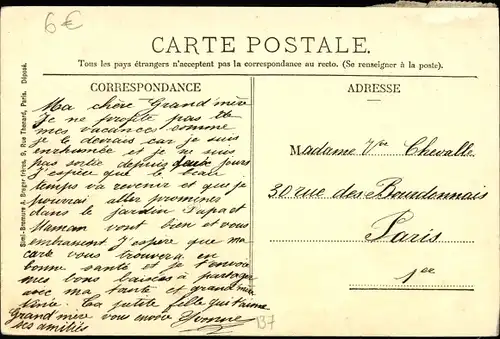 6€
CARTE POSTALE.
Tous les pays étrangers n'acceptent pas la correspondance au recto. (Se renseigner à la poste).
CORRESPONDANCE
Ma chère Grand'mère
Je ne profite pas de
mes vacances comme
je le devrais car je suis
enrhumée et je ne suis
pas sortie depuis jours
J'espère que le beau
temps va revenir et que je
pourrai aller promener
dans le jardin Papa et
Maman vont bien et vous
embrassent J'espère que ma
carte vous trouvera en
bonne santé et je t'envoie
mes bons baisers à partager
avec ma tante et grand'mère
Ta petite fille qui t'aime
Grand'mère vous envoie Yvonne
ses amitiés
137
ADRESSE
Madame Vve Chevalle
30 rue des Bourdonnais
Paris
1er
Simi-Bromure A. Breger frères, 9, Rue Thenard, Paris. Déposé.